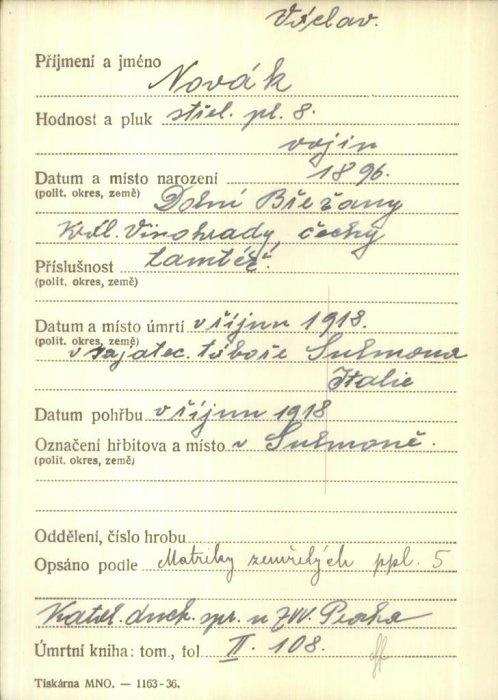 Václav.
Příjmení a jméno Novák
Hodnost a pluk střel. pl. 8.
vojin
Datum a místo narození 1896.
(polit. okres, země) Dolní Břežany
Král. Vinohrady, Čechy
Příslušnost tamtéž.
(polit. okres, země)
Datum a místo úmrtí v říjnu 1918.
(polit. okres, země) v zajatec. táboře Sulmona
Italie
Datum pohřbu v říjnu 1918
Označení hřbitova a místo v Sulmoně.
(polit. okres, země)
Oddělení, číslo hrobu
Opsáno podle Matriky zemřelých ppl. 5
Katol. duch. spr. u ZVV. Praha
Úmrtní kniha: tom., fol II. 108.
Tiskárna MNO. — 1163-36.